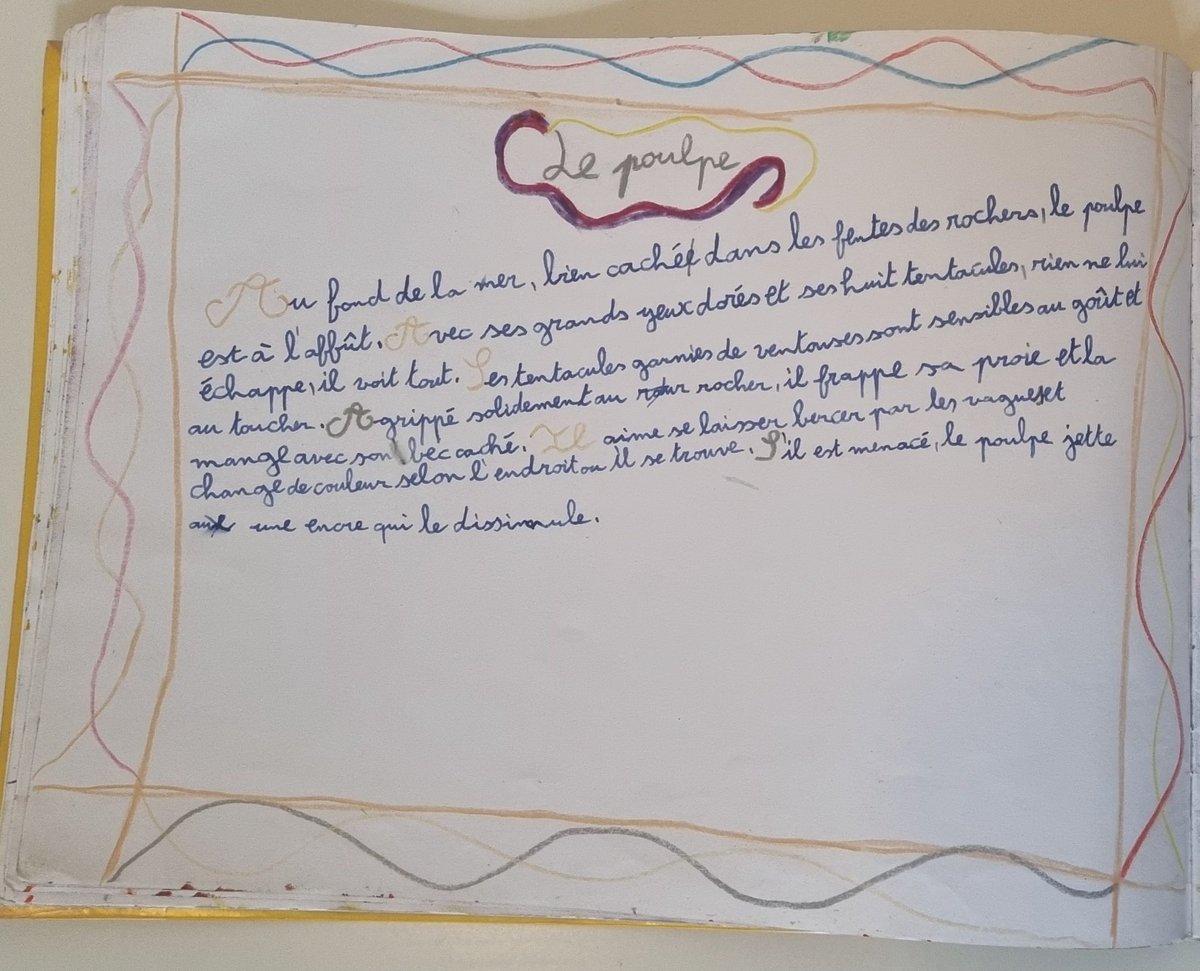 Le poulpe
Au fond de la mer, bien caché dans les fentes des rochers, le poulpe
est à l'affût. Avec ses grands yeux dorés et ses huit tentacules, rien ne lui
échappe, il voit tout. Ses tentacules garnies de ventouses sont sensibles au goût et
au toucher. Agrippé solidement au rocher, il frappe sa proie et la
mange avec son bec caché. Il aime se laisser bercer par les vagues et
change de couleur selon l'endroit ou il se trouve. S'il est menacé, le poulpe jette
une encre qui le dissimule.